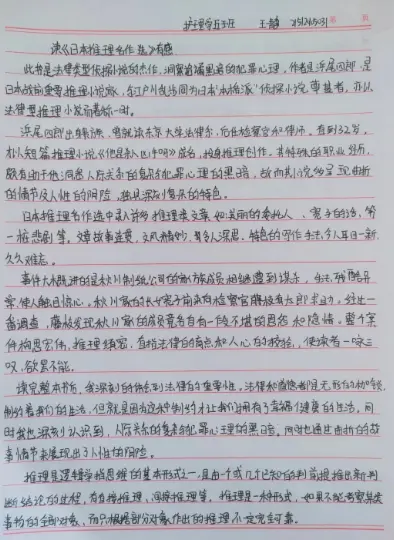 护理学五班 王
读《日本推理名作选》有感
此书是法律类型侦探小说的杰作,洞察描写的犯罪心理,作者是浜尾四郎,是
日本战前重要推理小说家,与江户川乱步同为日本"本格派"侦探小说奠基者,亦以
法律型推理小说而著称一时。
浜尾四郎出身,曾就读东京大学法律系,后任检察官和律师。直到32岁,
才以短篇推理小说《他是杀人凶手吗》成名,投身推理创作。其特殊的职业经历,
颇有助于他洞悉人际关系的复杂犯罪心理的黑暗,故而其小说呈现曲折
的情节及人性的阴险,独具深刻复杂的特色。
日本推理名作选中录入许多推理类文章,如美丽的委托人、富子的,第
一桩悲剧等。文章故事,文风精妙,引人深思,特色的写作手法令人耳目一新,
久久难忘。
事件大概讲的是秋川制纸公司的家族成员相继遭到谋杀,手法残酷异
常,使人触目惊心。秋川家的长女子前来向检察官藤枝太郎求助,经过一
番调查,藤枝发现秋川家的成员竟各自有一段不堪的恩怨和隐情,整个案
件构思宏伟,推理缜密,直指法律的盲点和人心的狡狯,使读者一咏三
叹,欲罢不能。
读完整本书,我深刻的体会到法律的重要性,法律和道德都是无形的枷锁,
制约着我们的生活,但就是因为这种制约才让我们拥有了幸福健康的生活,同
时我也深刻认识到,人际关系的复杂犯罪心理的黑暗,同时也通过曲折的故
事情节来展现出了人性的阴险。
推理是逻辑学指思维的基本形式之一,是由一个或几个已知的判断(前提)推出新判
断(结论)的过程,有直接推理,间接推理等。推理是一种形式,如果不能考察某类
事物的全部对象,而只根据部分对象作出的推理不一定完全可靠。